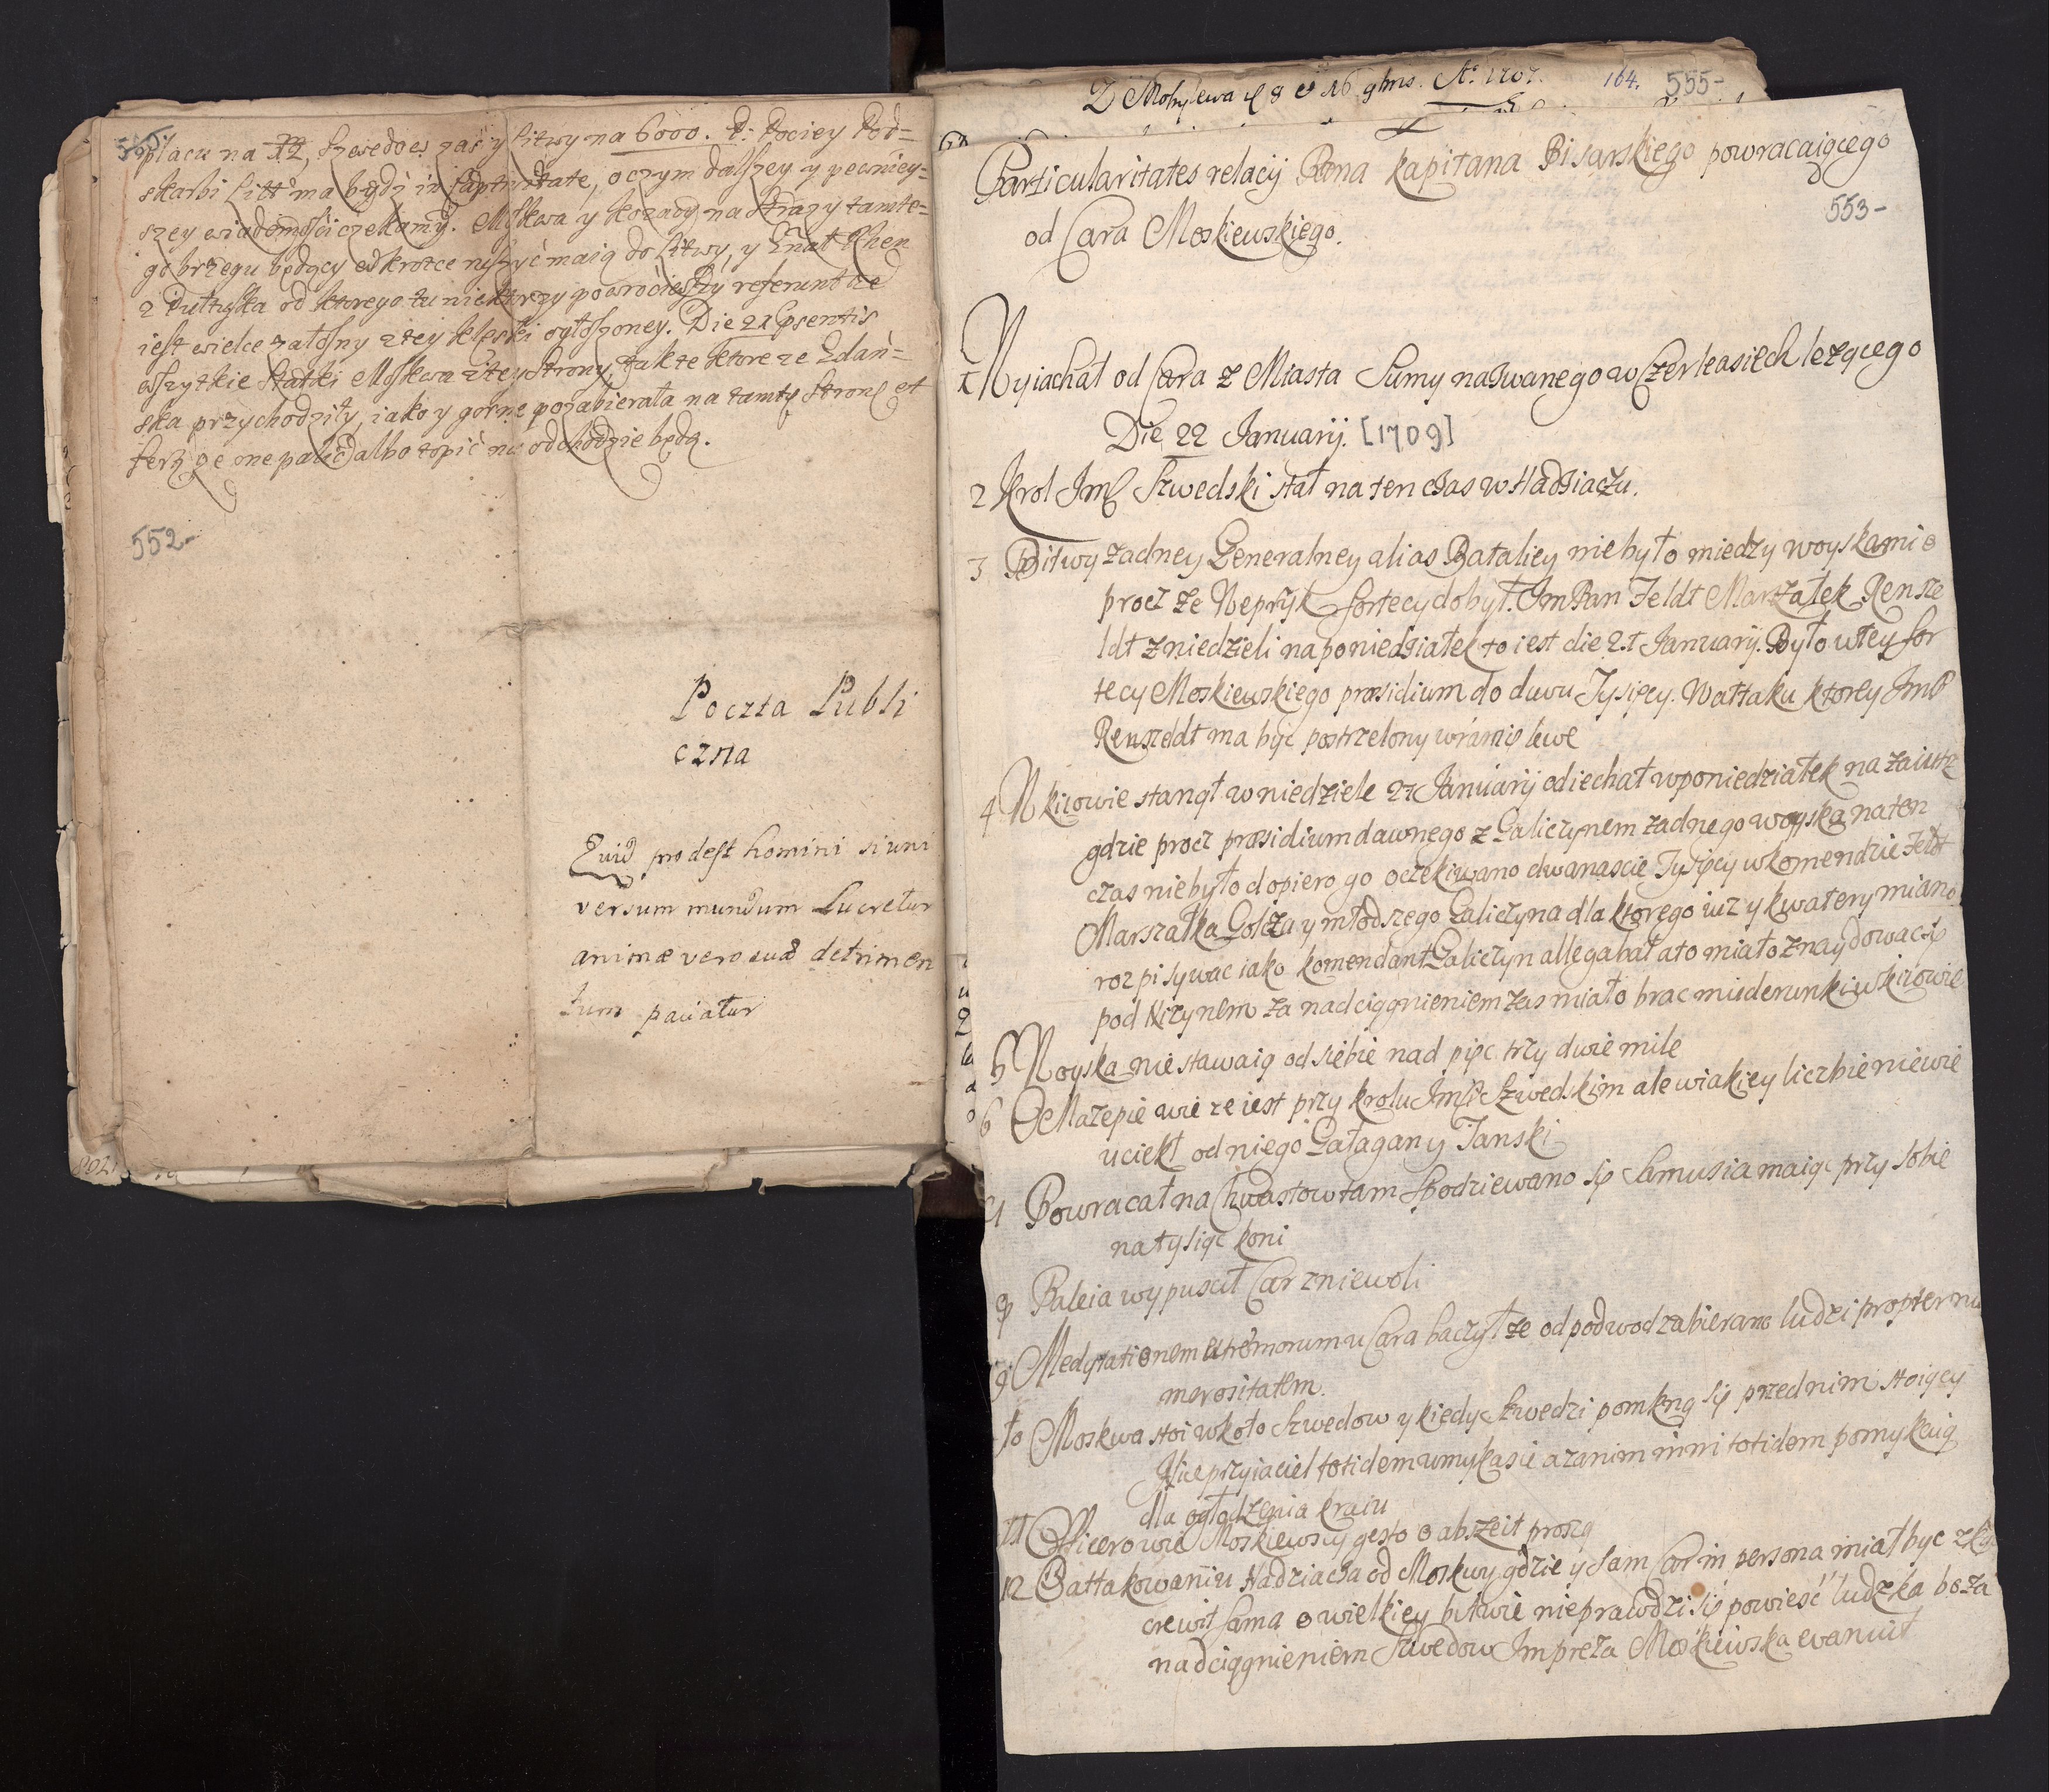 placu na 12, Szwedow zas y Litwy na 6000. P. Pociey Pod=
skarbi Litt ma bydz in Captivitate, o czym dalszey y pewniey=
szey wiadomosci czekamy. Moskwa y Kozacy na Strazy tamte=
go brzegu będący wkrotce ruszyć maią do Litwy, y Gnał Rhen
z Pułtuska od ktorego tu niektorzy powrociwszy referunt ze
iest wielce załosny z tey klęski ogłoszoney. Die 21 Psentis
wszytkie Statki Moskwa z tey Strony, tak te ktore ze Gdań=
ska przychodziły, iako y gorne pozabierała na tamtę Stronę et
fertur ze one palić albo topić na odchodzie będą.
552-
Poczta Publi
czna
Quid prodest homini si uni
versum mundum Lucretur
animæ vero suæ detrimen
tum paciatur
Z Mohylewa d 8 et 16 9bris. Ao 1707.
164. 555-
Particularitates relacÿ Pana Kapitana Bisarskiego powracaiącego
553-
od Cara Moskiewskiego.
1 Wyiachał od Cara z Miasta Sumy nazwanego w Czerkasiech lezącego
Die 22 Januarÿ. [1709]
2 Krol Jmć Szwedski stał na ten czas w Hadziaczu.
3 Bitwy zadney Generalney alias Bataliey niebyło miedzy woyskami o
procz ze Nepryk fortecy dobył. Jm Pan Feldt Marszałek Rensze
ldt z niedzieli na poniedziałek to iest die 21 Januarÿ. Było w tey for
tecy Moskiewskiego præsidium do dwu Tysięcy. W attaku ktorey Jmć
Renszeldt ma być postrzelony w ramię lewe
4 W Kiiowie stanął w niedziele 27 Januarÿ odiechał w poniedziałek na zaiutrz
gdzie procz præsidium dawnego z Galiczynem zadnego woyska na ten
czas niebyło dopiero go oczekiwano dwanascie Tysięcy w komendzie Feldt
Marszałka Goltza y młodszego Galiczyna dla ktorego iuz y kwatery miano
rozpisywac iako komendant Galiczyn allegabat a to miało znaydowac się
pod Nizynem za nadciągnieniem zas miało brac munderunki w Kiiowie
5 Woyska nie stawaią od siebie nad pięc trzy dwie mile
6 O Mazepie wie ze iest przy krolu Jmci Szwedskim ale w iakiey liczbie niewie
uciekł od niego Gałagan y Tanski
7 Powracał na Chwastow tam spodziewano się Samusia maiąc przy sobie
na tysiąc koni
8 Paleia wypuscił Car z niewoli
9 Medytationem extremorum u Cara baczył ze od podwod zabierano ludzi propter nu
merositatem.
10 Moskwa stoi wkoło Szwedow y kiedy Szwedzi pomkną się przed nimi stoiący
Nieprzyiaciel totidem umyka się a za nim inni totidem pomykaią
dla ogłodzenia kraiu
11 Officerowie Moskiewscy gęsto o abszeit proszą
12 O attakowaniu Hadziacza od Moskwy gdzie y sam Car in persona miał byc
sama o wielkiey bitwie nieprawdzi się powieść ludzka bo za
nadciągnieniem Szwedow Impreza Moskiewska evanuit